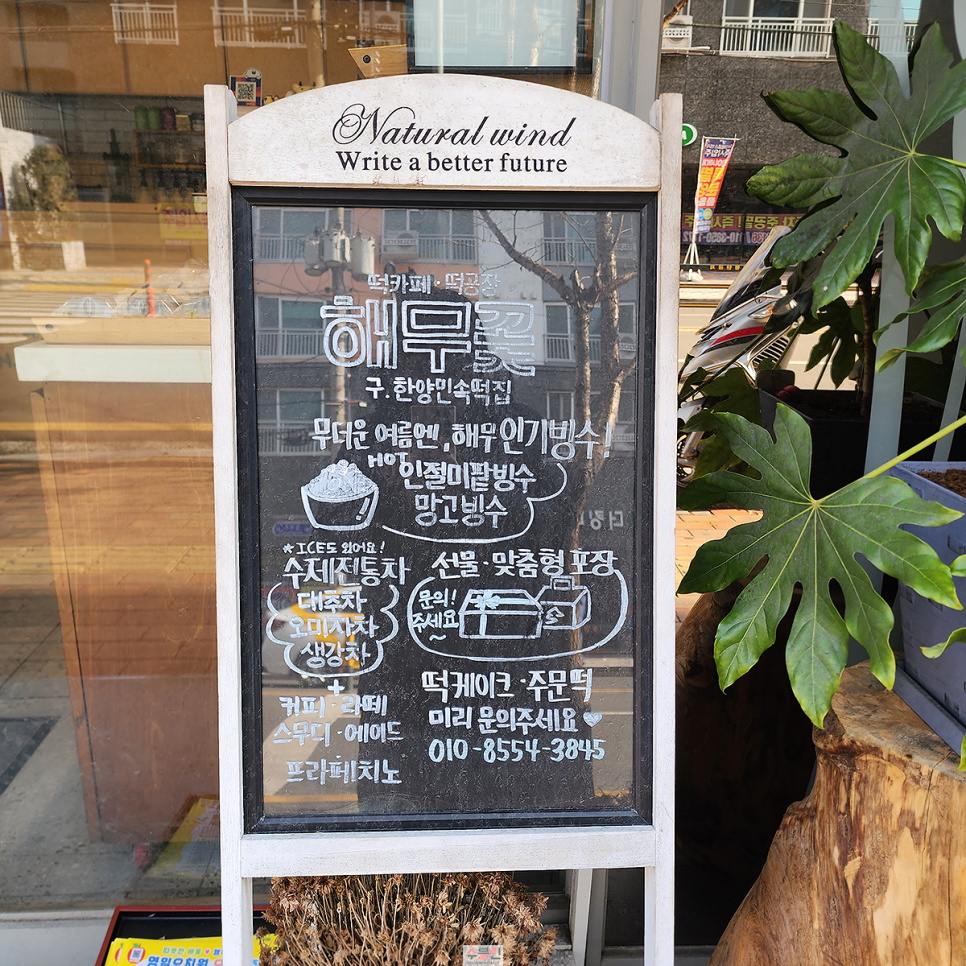 Natural wind
Write a better future
떡카페·떡공장
해무꽃
구. 한양민속떡집
무더운 여름엔, 해무 인기빙수!
HOT
인절미팥빙수
망고빙수
*ICE도 있어요!
수제전통차
대추차
오미자차
생강차
+
커피·라떼
스무디·에이드
프라페치노
선물·맞춤형 포장
문의!
주세요
~
떡케이크·주문떡
미리 문의주세요♥
010-8554-3845